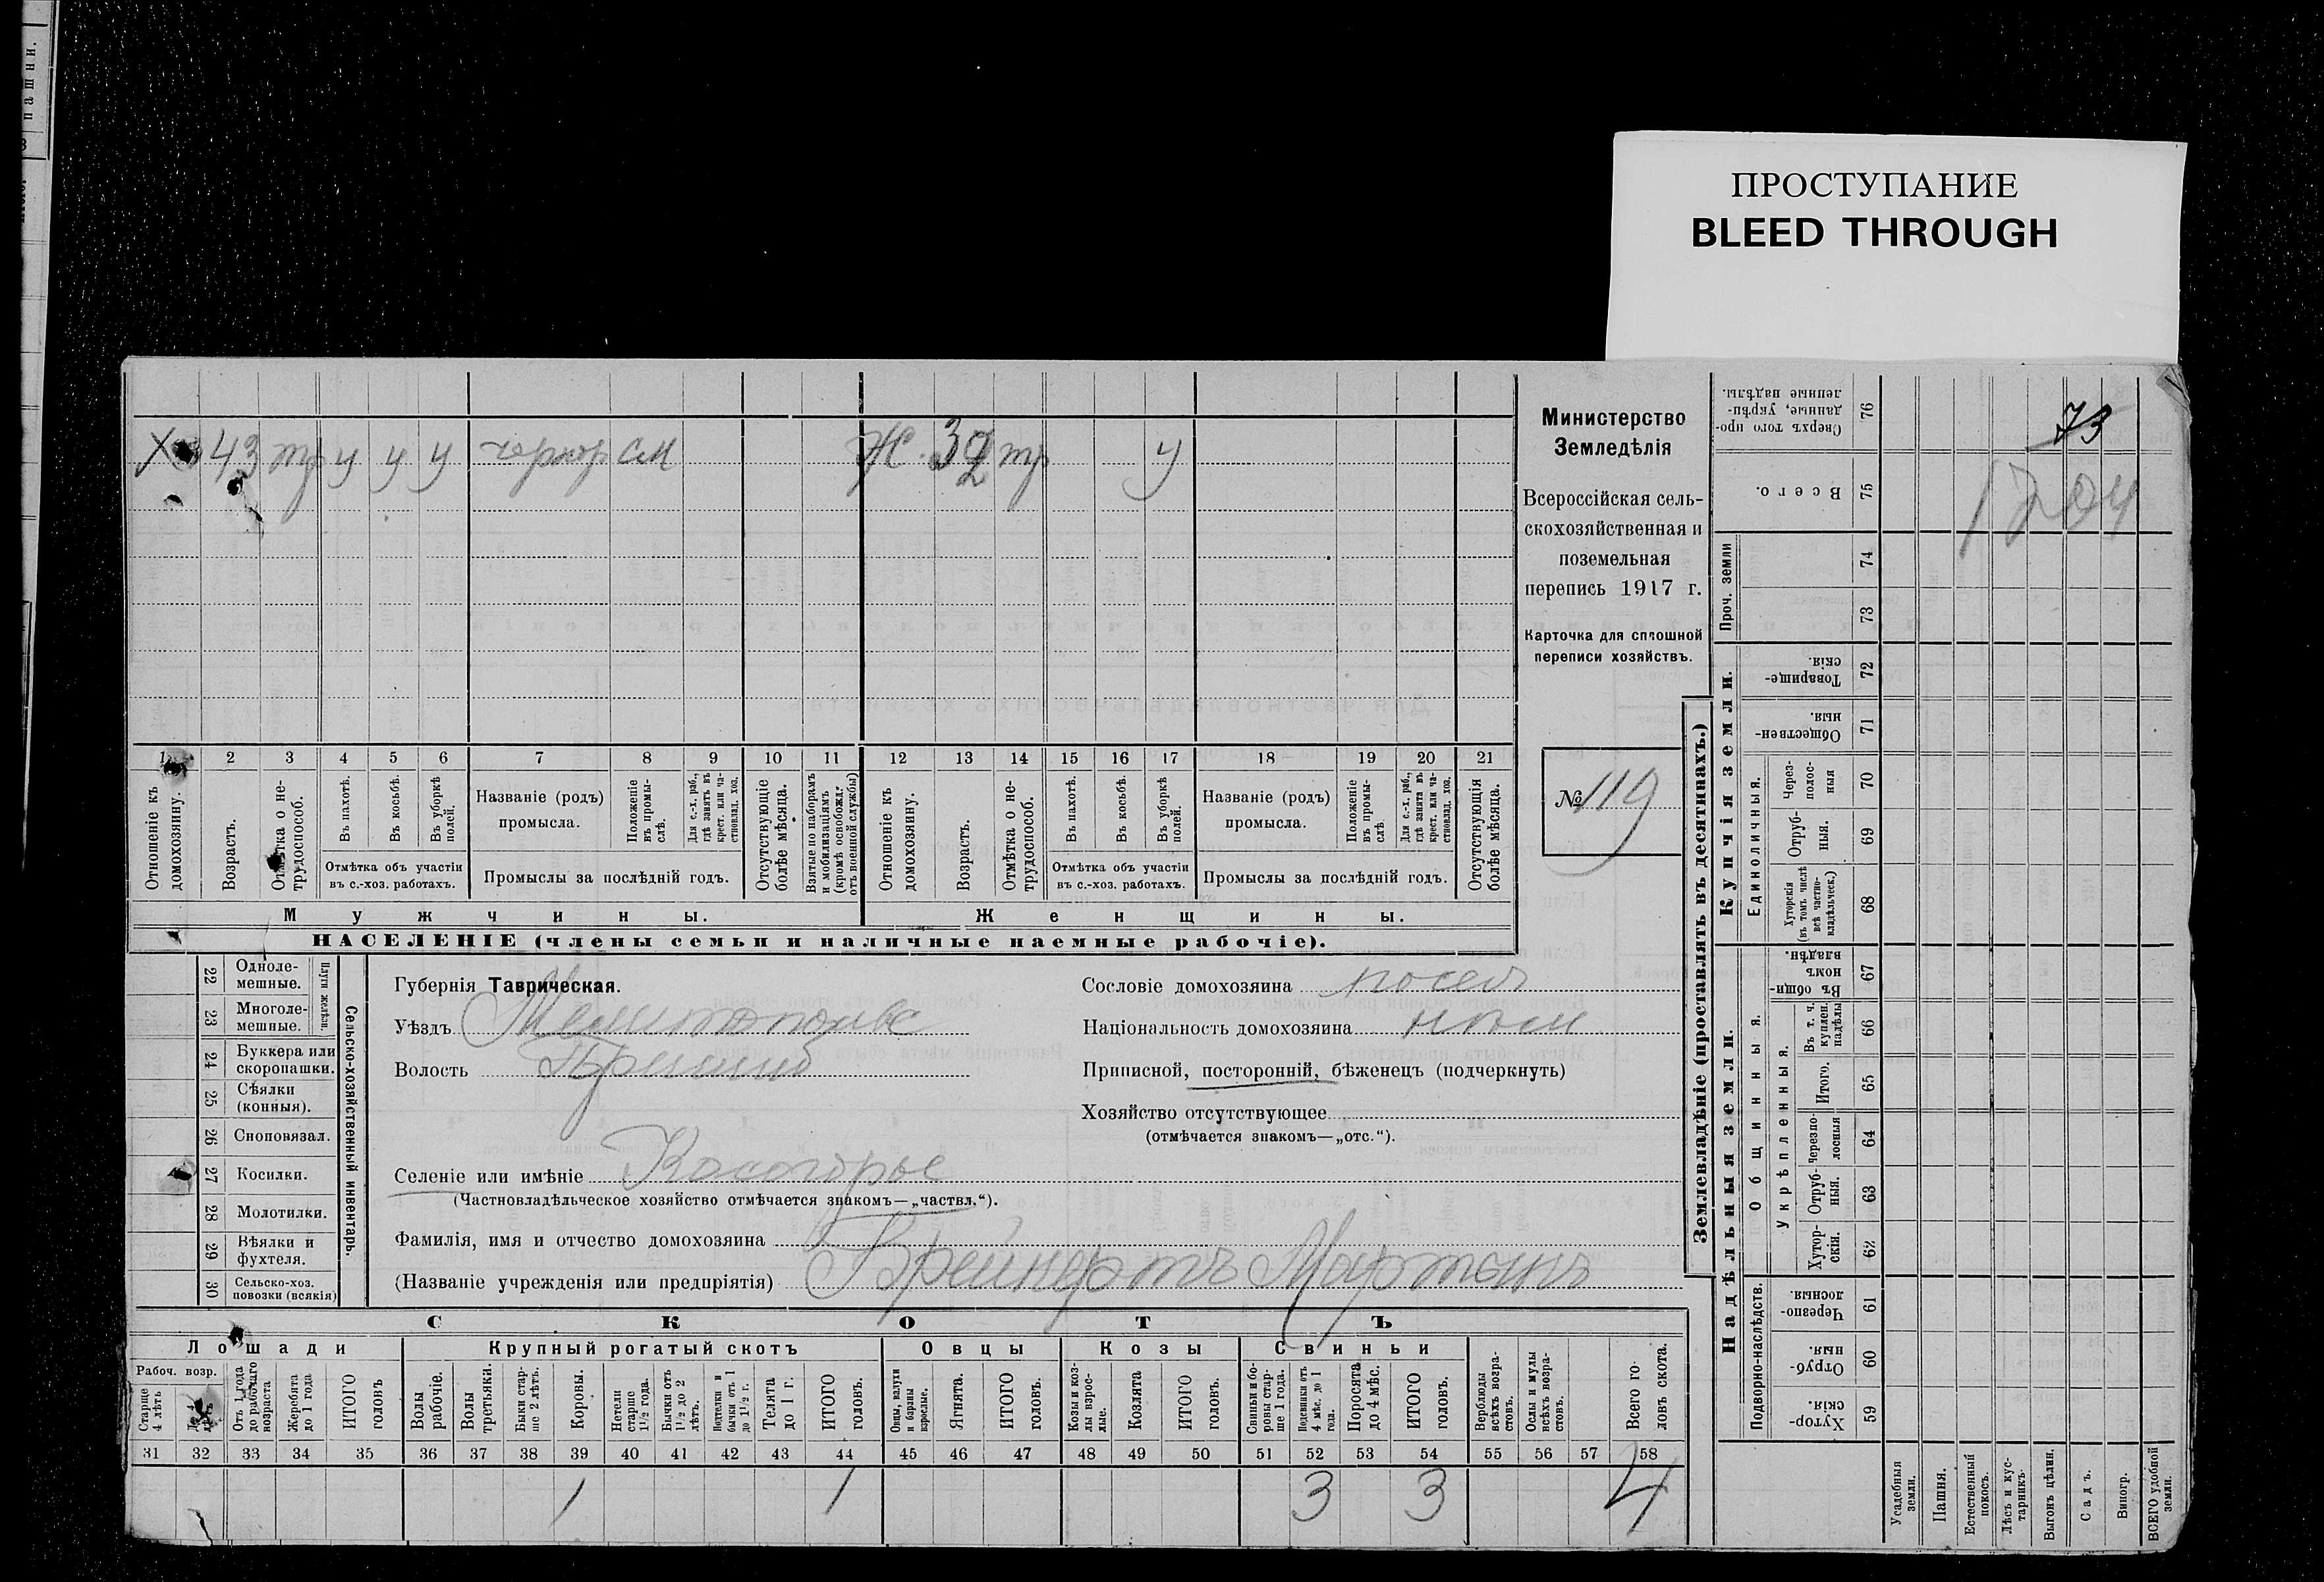 пашни.
ПРОСТУПАНИЕ
BLEED THROUGH
43 тр у у у чернор см Ж. 32 тр у
1 2 3 4 5 6 7 8 9 10 11 12 13 14 15 16 17 18 19 20 21
Отношеніе къ домохозяину.
Возрастъ.
Отмѣтка о нетрудоспособ.
Въ пахотѣ.
Въ косьбѣ.
Въ уборкѣ полей.
Отмѣтка объ участіи въ с.-хоз. работахъ.
Названіе (родъ) промысла.
Положеніе въ промыслѣ.
Для с.-х. раб., гдѣ занятъ въ крест. или частновлад. хоз.
Промыслы за послѣдній годъ.
Отсутствующіе болѣе мѣсяца.
Взятые по наборамъ и мобилизаціямъ (кромѣ освобожд. отъ военной службы)
Отношеніе къ домохозяину.
Возрастъ.
Отмѣтка о нетрудоспособ.
Въ пахотѣ.
Въ косьбѣ.
Въ уборкѣ полей.
Отмѣтка объ участіи въ с.-хоз. работахъ.
Названіе (родъ) промысла.
Положеніе въ промыслѣ.
Для с.-х. раб., гдѣ занята въ крест. или частновлад. хоз.
Промыслы за послѣдній годъ.
Отсутствующія болѣе мѣсяца.
Мужчины. Женщины.
НАСЕЛЕНІЕ (члены семьи и наличные наемные рабочіе).
Министерство
Земледѣлія
Всероссійская сель-
скохозяйственная и
поземельная
перепись 1917 г.
Карточка для сплошной
переписи хозяйствъ.
№ 119
22 Одноле-мешные.
23 Многоле-мешные.
Плуги желѣзн.
24 Буккера или скоропашки.
25 Сѣялки (конныя).
26 Сноповязал.
27 Косилки.
28 Молотилки.
29 Вѣялки и фухтеля.
30 Сельско-хоз. повозки (всякія)
Сельско-хозяйственный инвентарь.
Губернія Таврическая.
Уѣздъ Мелитопольс
Волость Пришиб
Селеніе или имѣніе Косогорье
(Частновладѣльческое хозяйство отмѣчается знакомъ—„частвл.“).
Фамилія, имя и отчество домохозяина
(Названіе учрежденія или предпріятія) Брейнертъ Мартинъ
Сословіе домохозяина посел
Національность домохозяина нѣм
Приписной, посторонній, бѣженецъ (подчеркнуть)
Хозяйство отсутствующее
(отмѣчается знакомъ—„отс.“).
СКОТЪ
Лошади Крупный рогатый скотъ Овцы Козы Свиньи
Рабоч. возр.
Старше 4 лѣтъ
Отъ 1 года до рабочаго возраста
Жеребята до 1 года
ИТОГО головъ
Волы рабочіе.
Волы третьяки.
Быки старше 2 лѣтъ.
Коровы.
Нетели старше 1½ года.
Бычки отъ 1½ до 2 лѣтъ.
Подтелки и бычки отъ 1 до 1½ г.
Телята до 1 г.
ИТОГО головъ.
Овцы, валухи и бараны взрослые.
Ягнята.
ИТОГО головъ.
Козы и козлы взрослые.
Козлята
ИТОГО головъ.
Свиньи и боровы старше 1 года.
Подсвинки отъ 4 мѣс. до 1 года.
Поросята до 4 мѣс.
ИТОГО головъ.
Верблюды всѣхъ возрастовъ.
Ослы и мулы всѣхъ возрастовъ.
Всего головъ скота.
31 32 33 34 35 36 37 38 39 40 41 42 43 44 45 46 47 48 49 50 51 52 53 54 55 56 57 58
1 1 3 3 4
Землевладѣніе (проставлять въ десятинахъ.)
Купчія земли.
Надѣльныя земли.
Сверхъ того проданные, укрѣпленные надѣлы. 76
73
Всего. 75
1204
Проч. земли 74 73
Товарищескія. 72
Общественныя. 71
Единоличныя.
Черезполосныя 70
Отрубныя. 69
Хуторскія (въ томъ числѣ всѣ частновладѣльческ.) 68
Общинныя.
Въ общинномъ владѣн. 67
Укрѣпленныя.
Въ т. ч. куплен. надѣлы 66
Итого. 65
Черезполосныя 64
Отрубныя. 63
Хуторскія. 62
Подворно-наслѣдств.
Черезполосныя. 61
Отрубныя. 60
Хуторскія. 59
Усадебныя земли.
Пашня.
Естественный покосъ.
Лѣсъ и кустарникъ.
Выгонъ цѣлин.
Садъ.
Виногр.
ВСЕГО удобной земли.